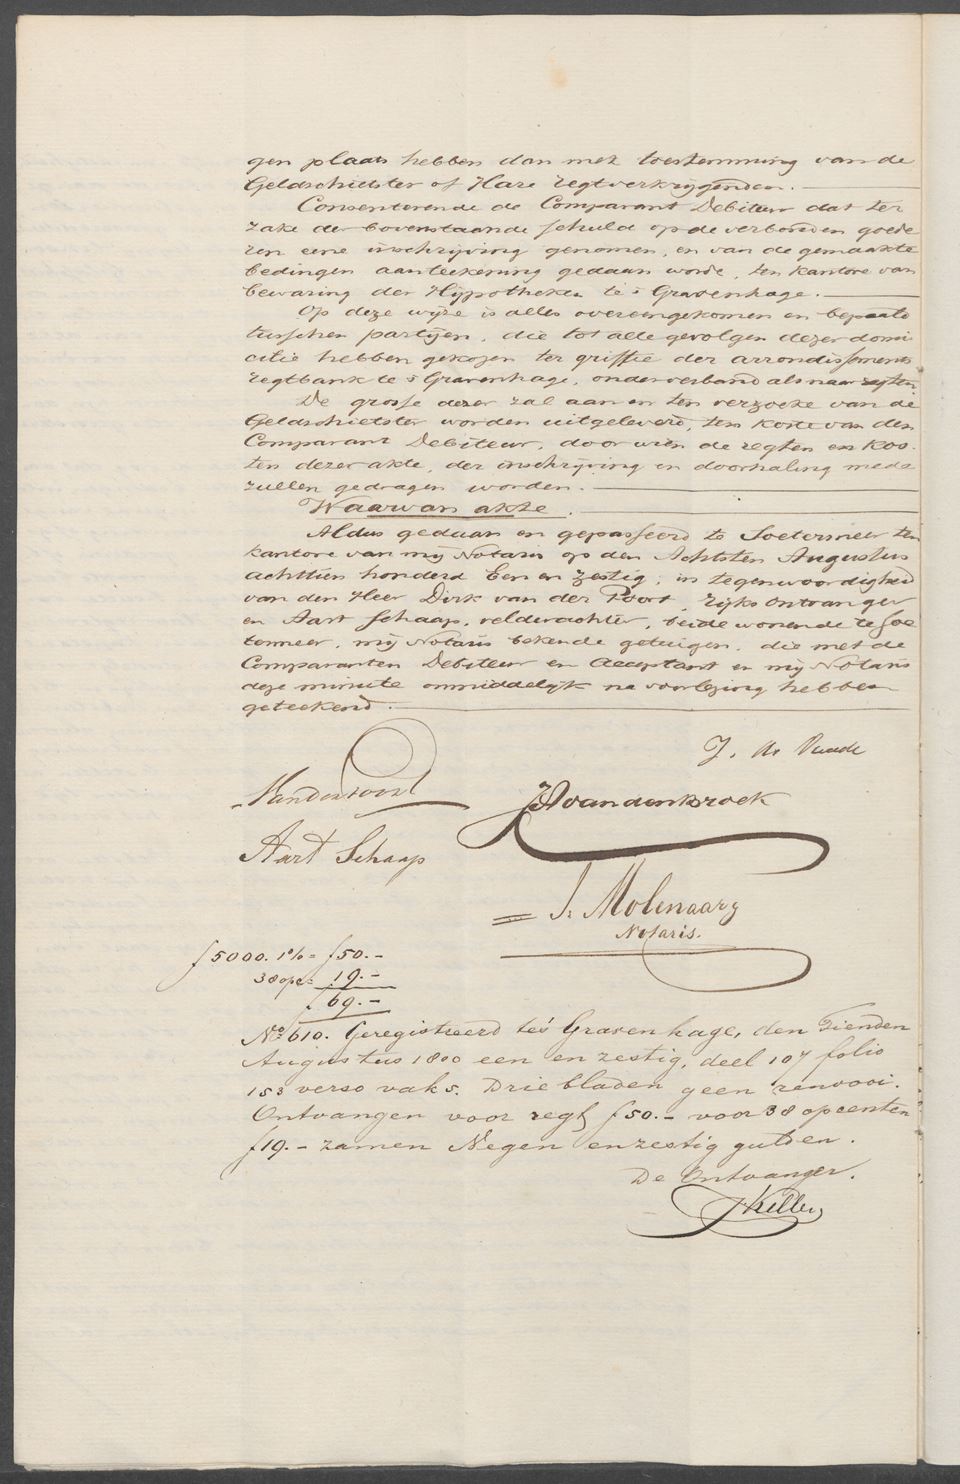 gen plaats hebben dan met toestemming van de
Geldschietster of Hare regtverkrijgenden.
Consenterende de Comparant Debiteur dat ter
zake der bovenstaande schuld op de verbonden goede
ren eene inschrijving genomen, en van de gemaakte
bedingen aanteekening gedaan worde, ten kantore van
bewaring der Hijpotheken te 's Gravenhage.
Op deze wijze is alles overeengekomen en bepaald
tusschen partijen, die tot alle gevolgen dezer domi
cilie hebben gekozen ter griffie der arrondissements
regtbank te 's Gravenhage, onder verband als naar regten
De grosse dezer zal aan en ten verzoeke van de
Geldschietster worden uitgeleverd, ten koste van den
Comparant Debiteur, door wien de regten en kos-
ten dezer akte, der inschrijving en doorhaling mede
zullen gedragen worden.
Waarvan akte.
Aldus gedaan en gepasseerd te Soetermeer ten
kantore van mij Notaris op den Achtsten Augustus
achttien honderd Een en zestig, in tegenwoordigheid
van den Heer Dirk van der Poort, rijks ontvanger
en Aart Schaap, veldwachter, beide wonende te Soe
termeer, mij Notaris bekende getuigen, die met de
Comparanten Debiteur en Acceptant en mij Notaris
deze minute onmiddelijk na voorlezing hebben
geteekend.
J. de
Vanderpoort
HvandenBroek
Aart Schaap
J. Molenaarz
Notaris.
f 5000. 1% = f 50.-
38 opc = 19.-
f 69.-
No 610. Geregistreerd te 's Gravenhage, den Tienden
Augustus 1800 een en zestig, deel 107 folio
153 verso vak 5. Drie bladen geen renvooi.
Ontvangen voor regt f 50.- voor 38 opcenten
f 19.- zamen Negen en zestig gulden.
De Ontvanger.